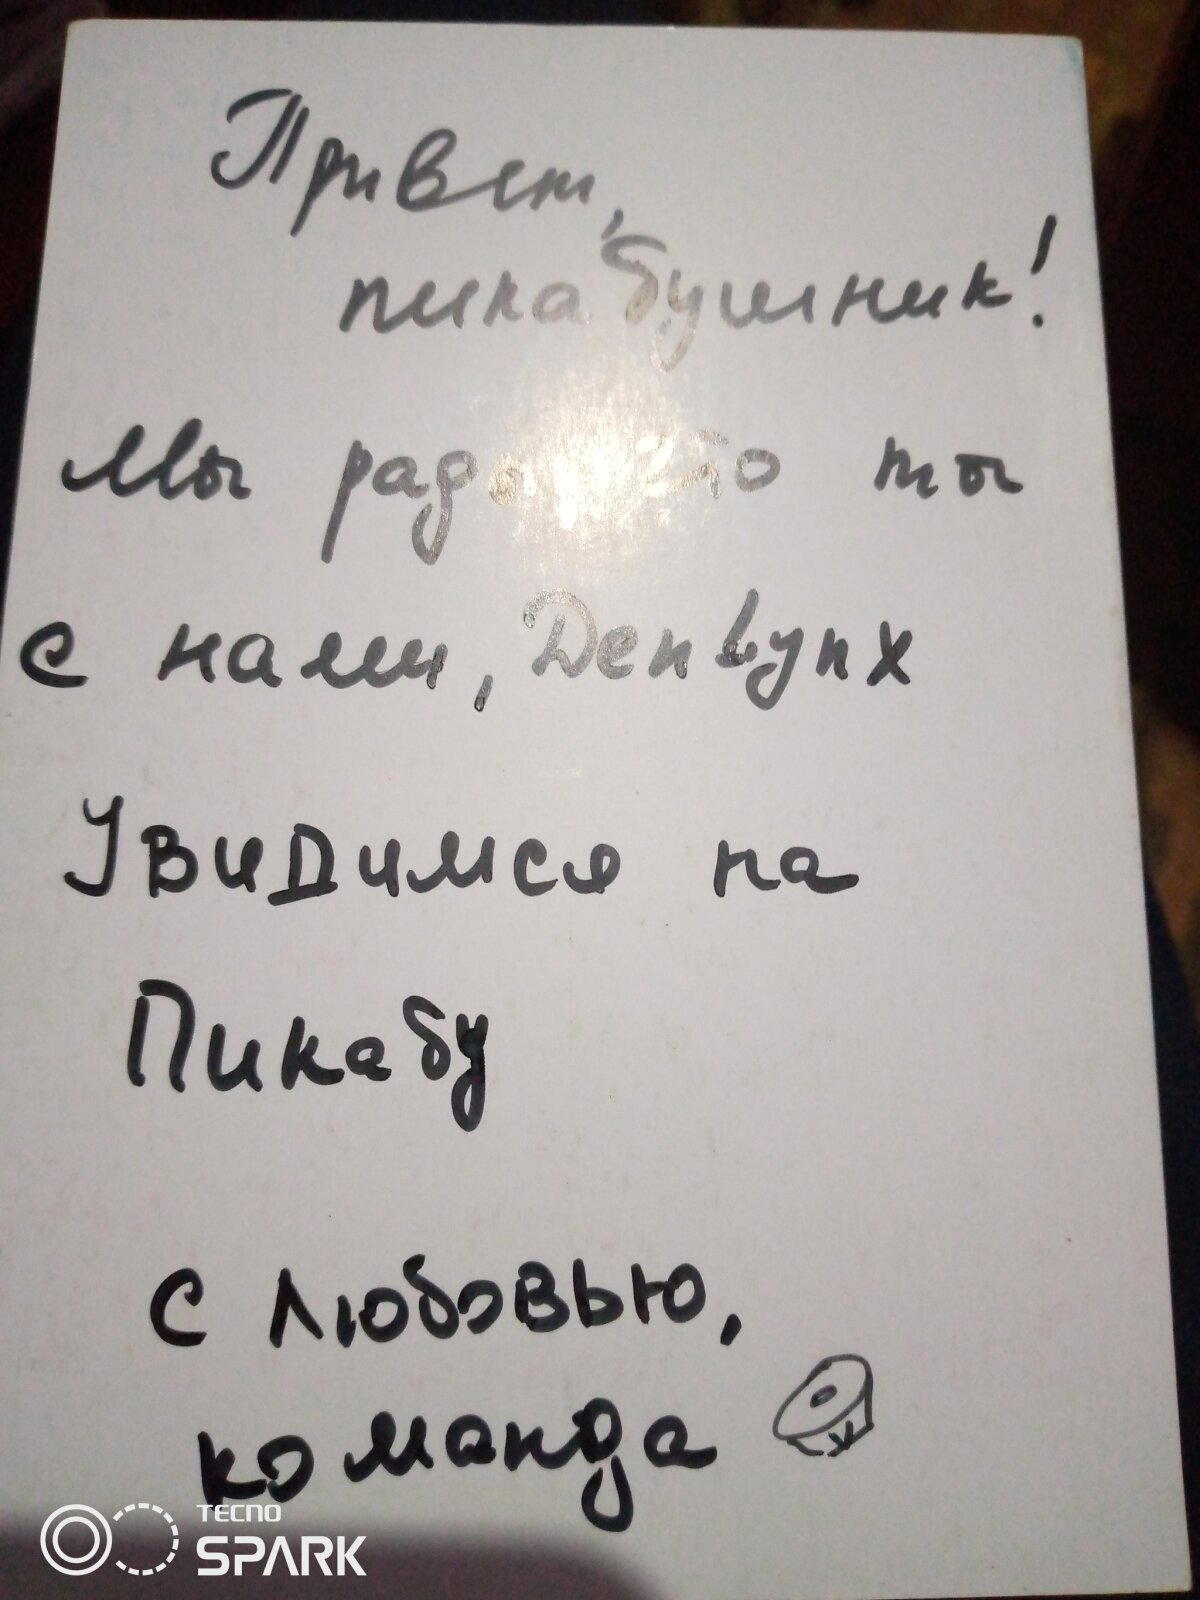 Привет,
пикабушник!
Мы рады что ты
с нами,
Увидимся на
Пикабу
с любовью,
команда
TECNO
SPARK